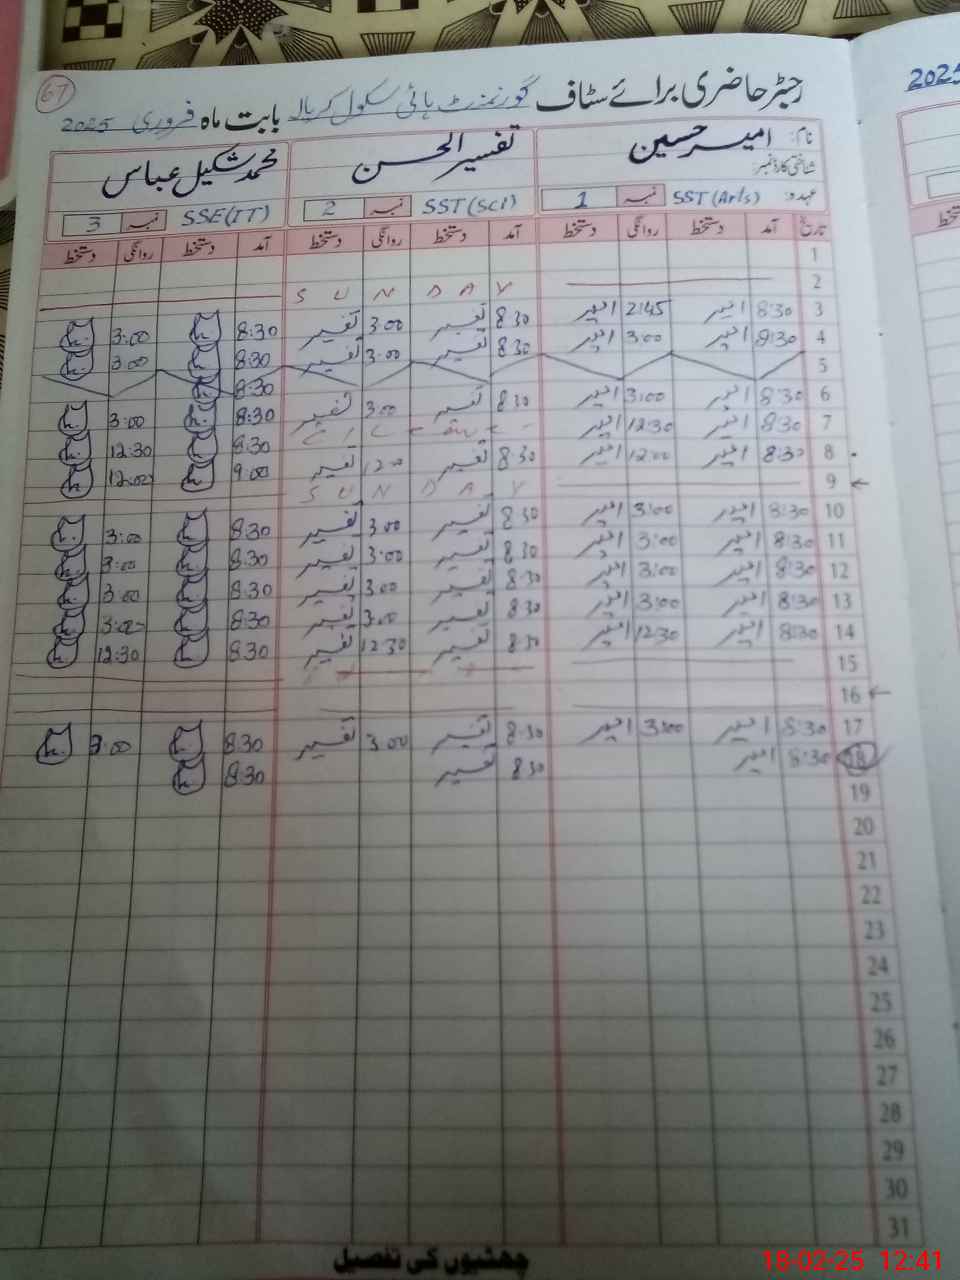 67
رجسٹر حاضری برائے سٹاف گورنمنٹ ہائی سکول کریالہ بابت ماہ فروری 2025
2025
نام: امیر حسین تفسیر الحسن محمد شکیل عباس
شناختی کارڈ نمبر
عہدہ: SST (Arts) نمبر 1 SST (SCI) نمبر 2 SSE (IT) نمبر 3
تاریخ آمد دستخط روانگی دستخط آمد دستخط روانگی دستخط آمد دستخط روانگی دستخط
1
2 S U N D A Y
3 8:30 امیر 2:45 امیر 8:30 تفسیر 3:00 تفسیر 8:30 3:00
4 8:30 امیر 3:00 امیر 8:30 تفسیر 3:00 تفسیر 8:30 3:00
5 8:30
6 8:30 امیر 3:00 امیر 8:30 تفسیر 3:00 تفسیر 8:30 3:00
7 8:30 امیر 12:30 امیر 8:30 12:30
8 8:30 امیر 12:00 امیر 8:30 تفسیر 12:00 تفسیر 9:00 12:00
9 S U N D A Y
10 8:30 امیر 3:00 امیر 8:30 تفسیر 3:00 تفسیر 8:30 3:00
11 8:30 امیر 3:00 امیر 8:30 تفسیر 3:00 تفسیر 8:30 3:00
12 8:30 امیر 3:00 امیر 8:30 تفسیر 3:00 تفسیر 8:30 3:00
13 8:30 امیر 3:00 امیر 8:30 تفسیر 3:00 تفسیر 8:30 3:00
14 8:30 امیر 12:30 امیر 8:30 تفسیر 12:30 تفسیر 8:30 12:30
15
16
17 8:30 امیر 3:00 امیر 8:30 تفسیر 3:00 تفسیر 8:30 3:00
18 8:30 امیر 8:30 تفسیر 8:30
19
20
21
22
23
24
25
26
27
28
29
30
31
چھٹیوں کی تفصیل
18-02-25 12:41